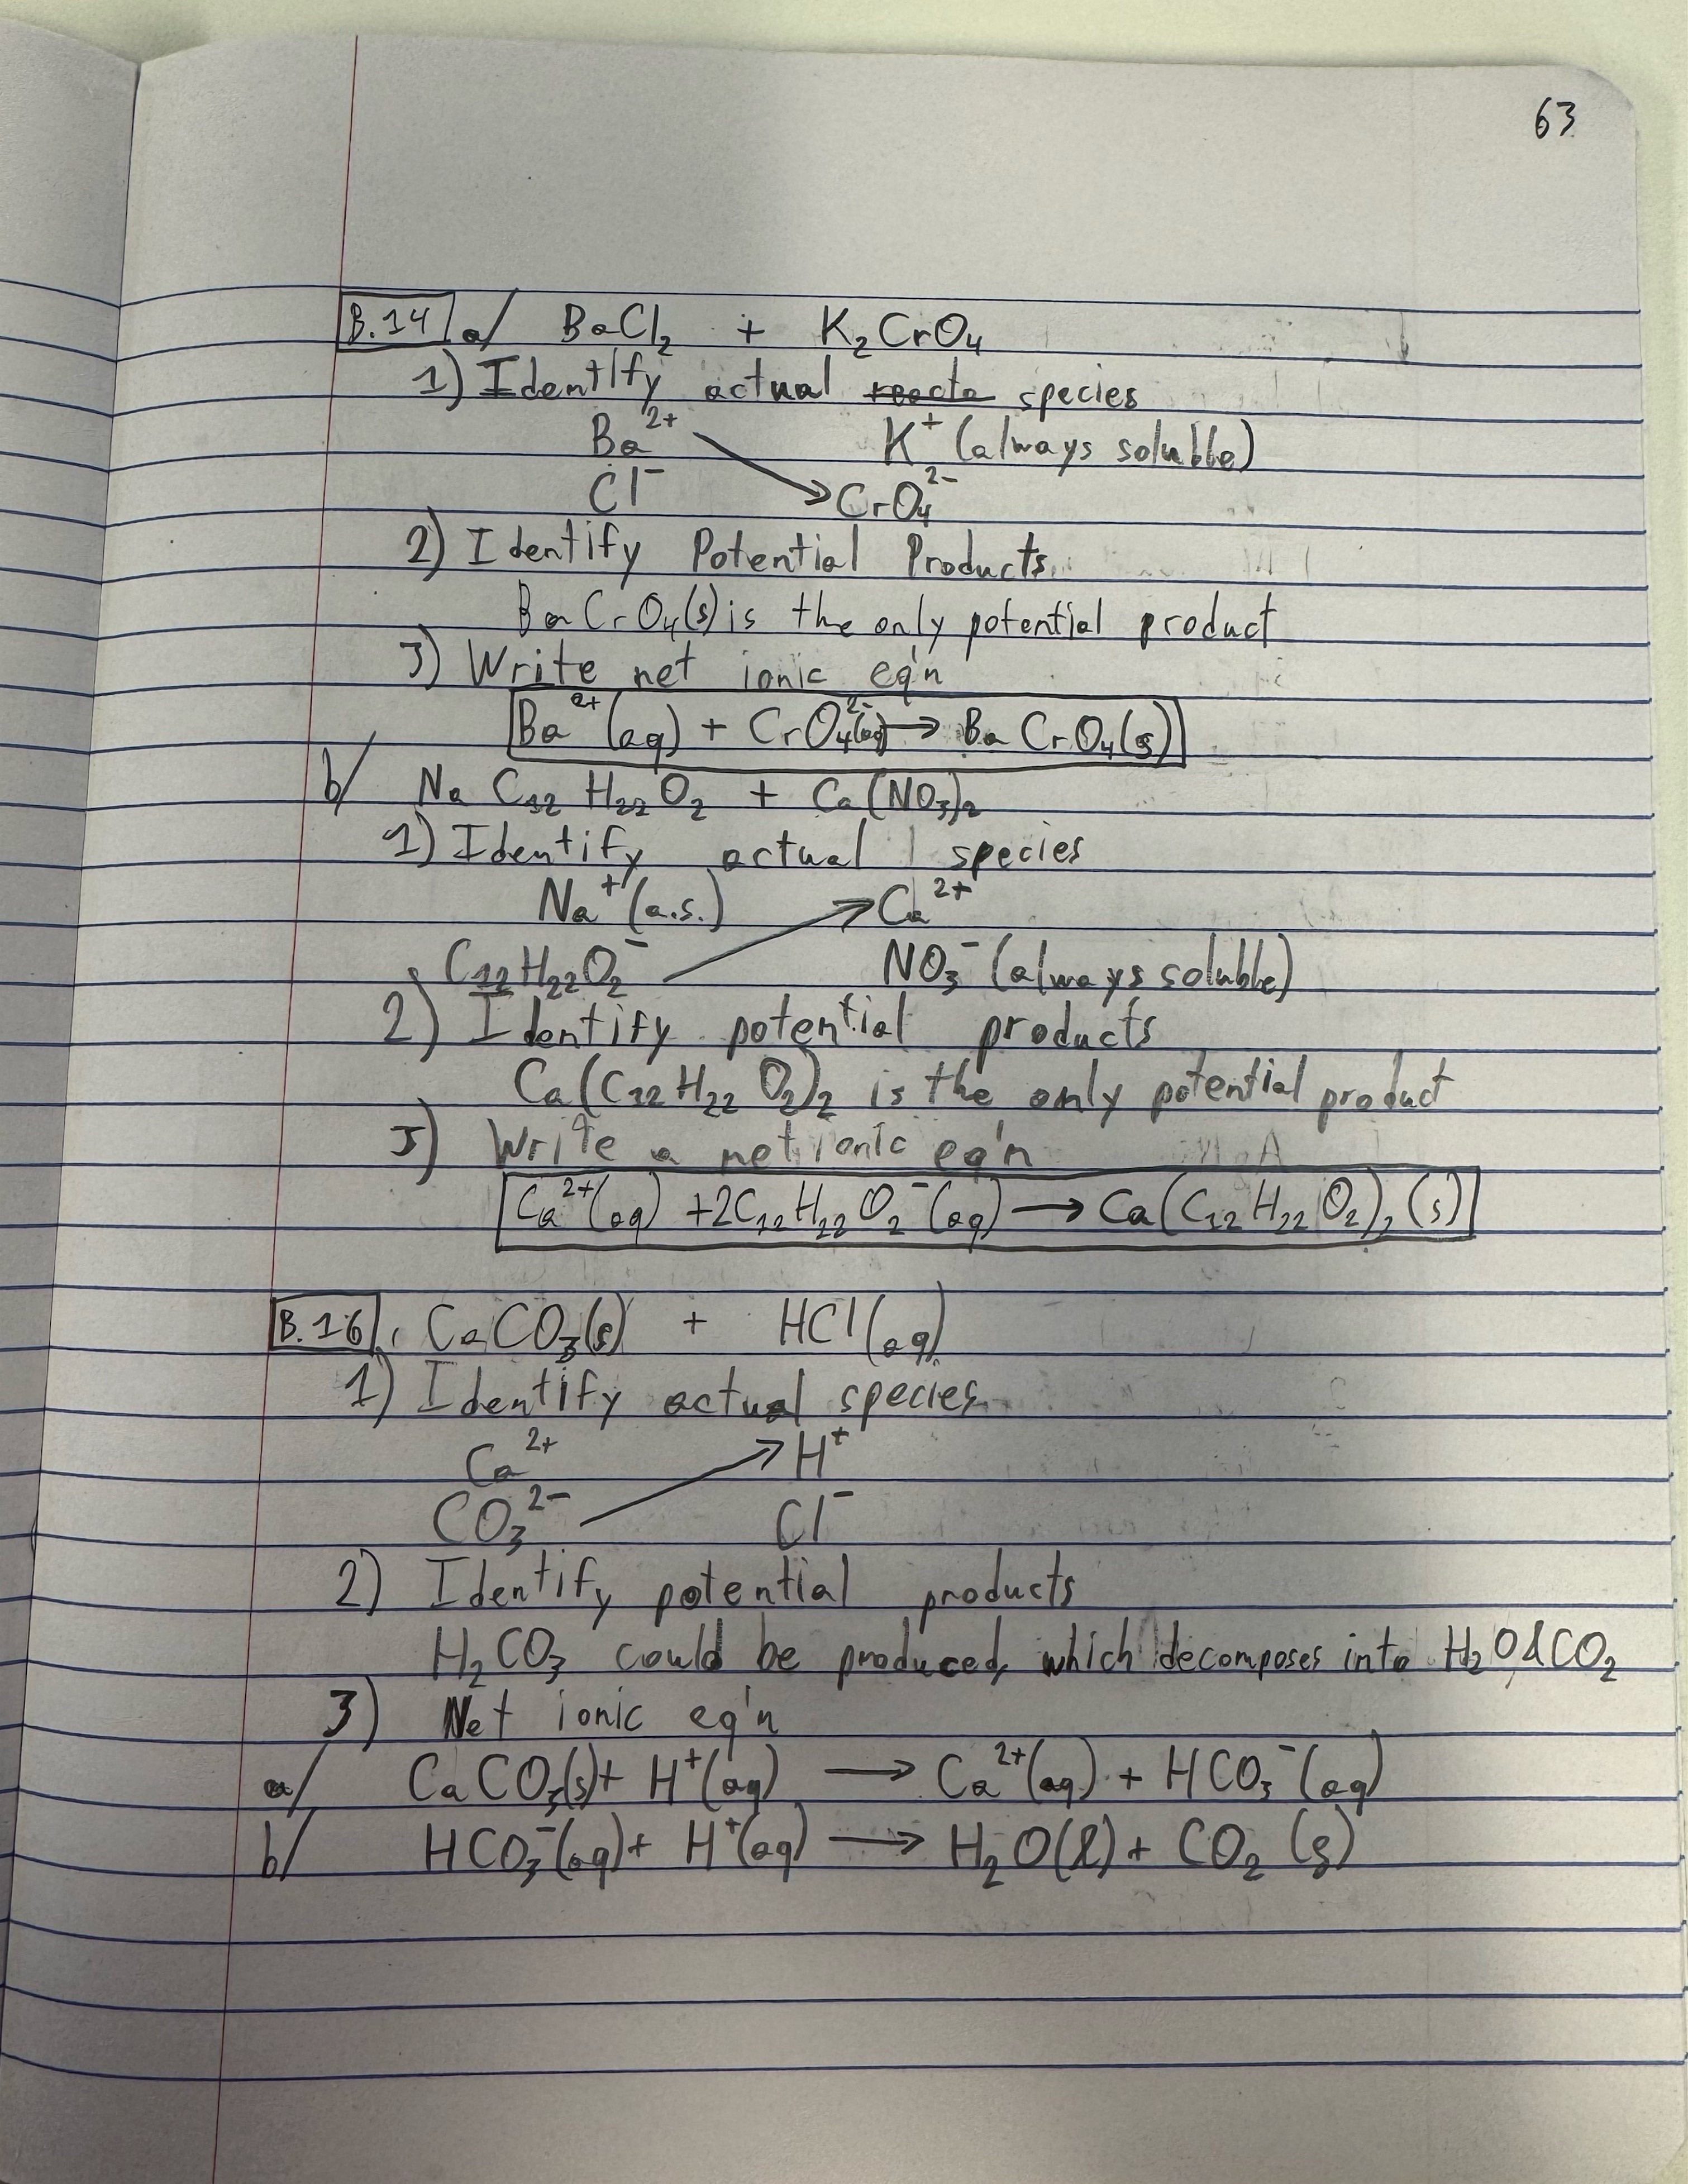 63
B.14 a/ BaCl₂ + K₂CrO₄
1) Identify actual species
Ba²⁺ K⁺ (always soluble)
Cl⁻ → CrO₄²⁻
2) Identify Potential Products
BaCrO₄(s) is the only potential product
3) Write net ionic eq'n
Ba²⁺(aq) + CrO₄²⁻(aq) → BaCrO₄(s)
b/ NaC₁₂H₂₂O₂ + Ca(NO₃)₂
1) Identify actual species
Na⁺ (a.s.) → Ca²⁺
C₁₂H₂₂O₂⁻ NO₃⁻ (always soluble)
2) Identify potential products
Ca(C₁₂H₂₂O₂)₂ is the only potential product
3) Write a net ionic eq'n
Ca²⁺(aq) + 2C₁₂H₂₂O₂⁻(aq) → Ca(C₁₂H₂₂O₂)₂(s)
B.16 CaCO₃(s) + HCl(aq)
1) Identify actual species
Ca²⁺ → H⁺
CO₃²⁻ Cl⁻
2) Identify potential products
H₂CO₃ could be produced, which decomposes into H₂O & CO₂
3) Net ionic eq'n
a/ CaCO₃(s) + H⁺(aq) → Ca²⁺(aq) + HCO₃⁻(aq)
b/ HCO₃⁻(aq) + H⁺(aq) → H₂O(l) + CO₂(g)